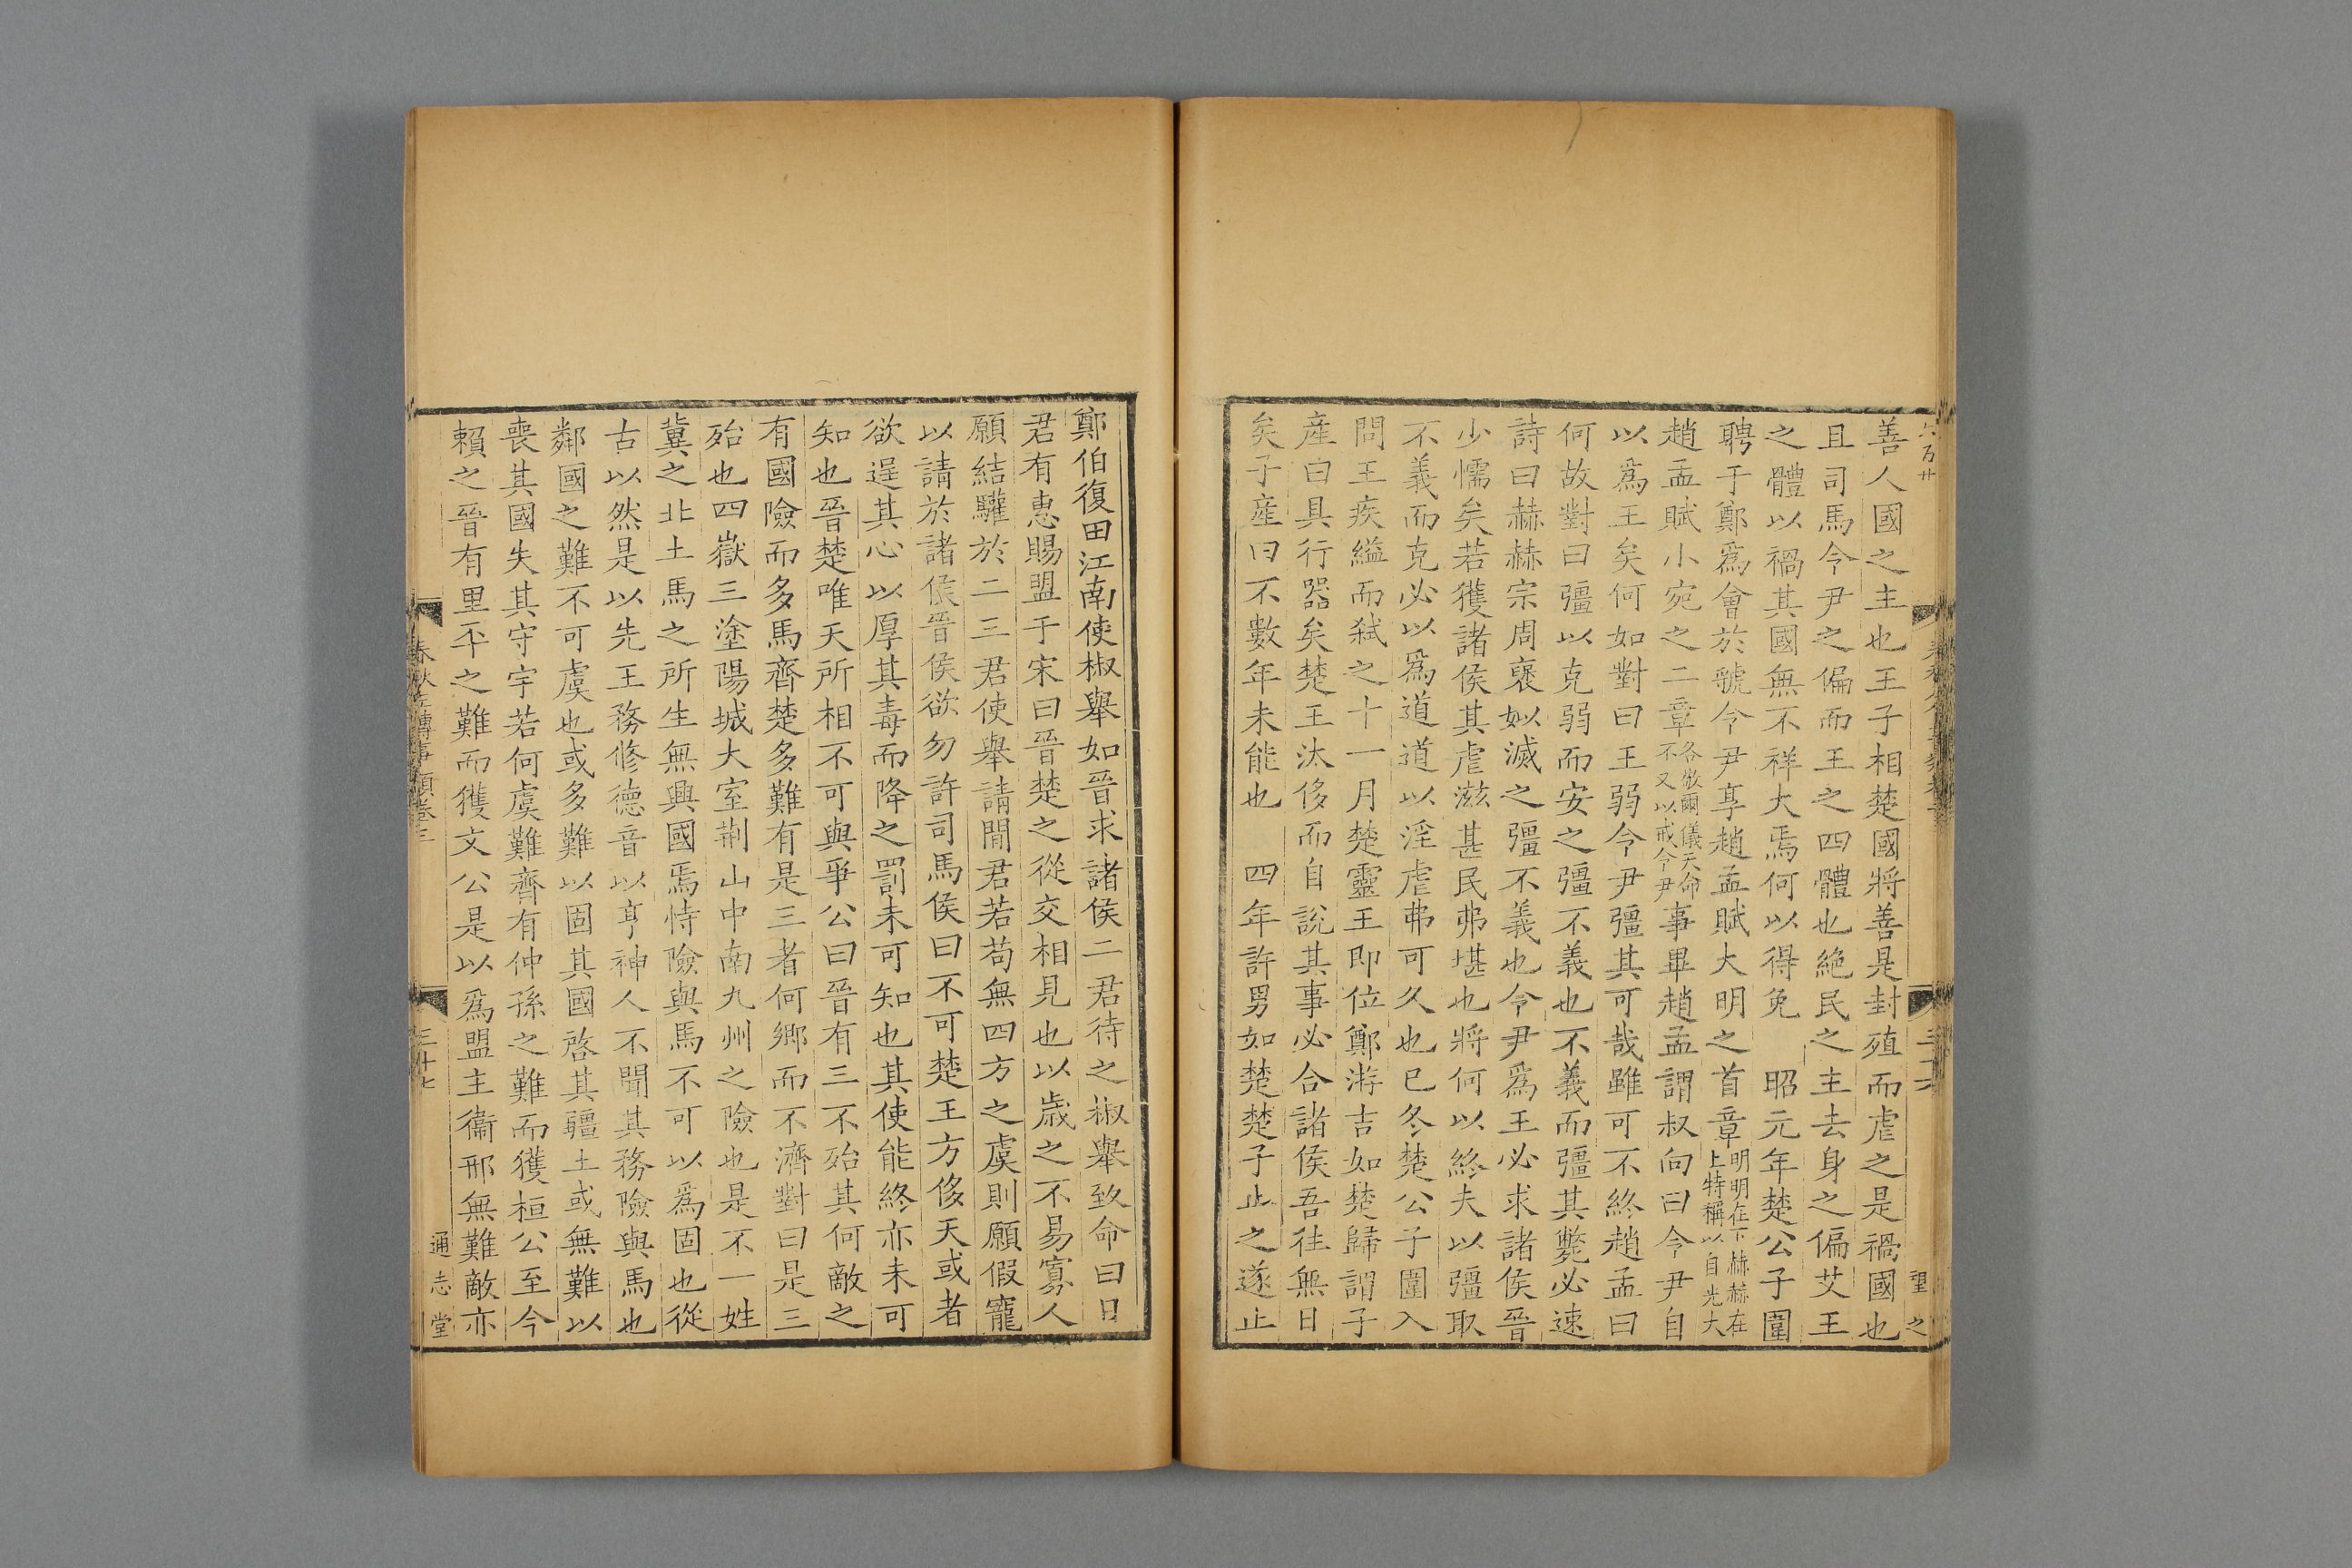 善人國之主也王子相楚國將善是封殖而虐之是禍國也
且司馬令尹之偏而王之四體也絶民之主去身之偏艾王
之體以禍其國無不祥大焉何以得免　昭元年楚公子圍
聘于鄭爲會於虢令尹享趙孟賦大明之首章明明在下赫赫在上特稱以自光大
趙孟賦小宛之二章各敬爾儀天命不又以戒令尹事畢趙孟謂叔向曰令尹自
以爲王矣何如對曰王弱令尹彊其可哉雖可不終趙孟曰
何故對曰彊以克弱而安之彊不義也不義而彊其斃必速
詩曰赫赫宗周襃姒滅之彊不義也令尹爲王必求諸侯晉
少懦矣若獲諸侯其虐滋甚民弗堪也將何以終夫以彊取
不義而克必以爲道道以淫虐弗可久也已冬楚公子圍入
問王疾縊而弑之十一月楚靈王即位鄭游吉如楚歸謂子
産曰具行器矣楚王汰侈而自說其事必合諸侯吾往無日
矣子産曰不數年未能也　四年許男如楚楚子止之遂止
鄭伯復田江南使椒舉如晉求諸侯二君待之椒舉致命曰曰
君有惠賜盟于宋曰晉楚之從交相見也以歲之不易寡人
願結驩於二三君使舉請閒君若苟無四方之虞則願假寵
以請於諸侯晉侯欲勿許司馬侯曰不可楚王方侈天或者
欲逞其心以厚其毒而降之罰未可知也其使能終亦未可
知也晉楚唯天所相不可與爭公曰晉有三不殆其何敵之
有國險而多馬齊楚多難有是三者何鄉而不濟對曰是三
殆也四嶽三塗陽城大室荆山中南九州之險也是不一姓
冀之北土馬之所生無興國焉恃險與馬不可以爲固也從
古以然是以先王務修德音以亨神人不聞其務險與馬也
鄰國之難不可虞也或多難以固其國啓其疆土或無難以
喪其國失其守宇若何虞難齊有仲孫之難而獲桓公至今
賴之晉有里丕之難而獲文公是以爲盟主衞邢無難敵亦
春秋左傳事類卷三
三十七
通志堂
望之